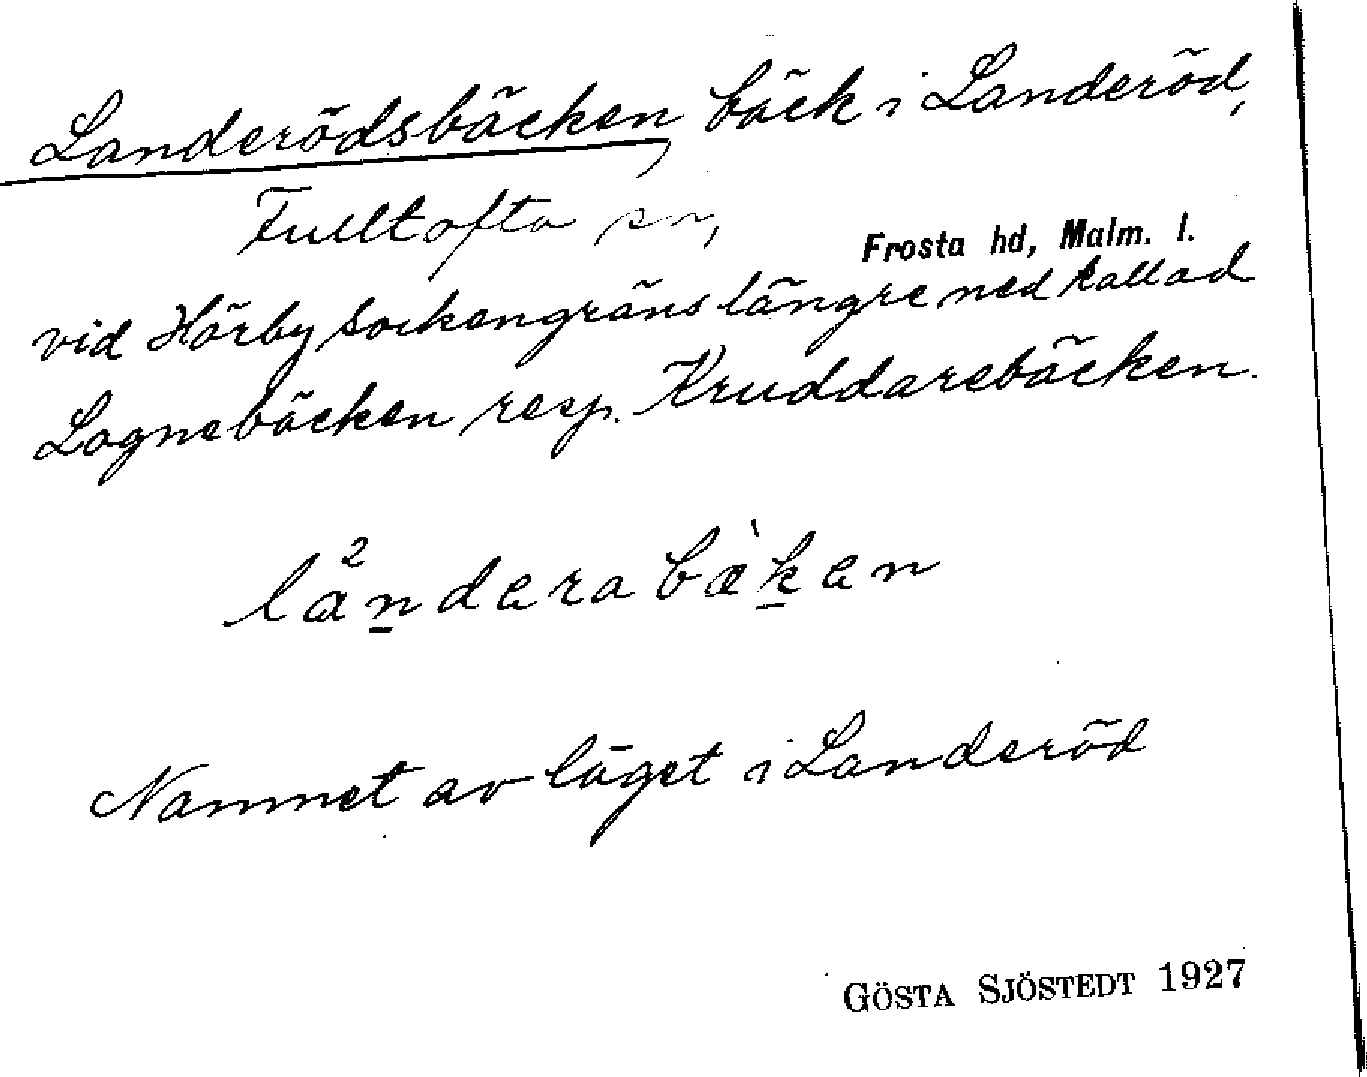 Landerödsbäcken, bäck i Landeröd,
Fulltofta sn,
Frosta hd, Malm. l.
vid Hörby sockengräns längre ned kallad
Lognebäcken resp. Kruddarebäcken.
lå²n̲derabæ̀k̲en
Namnet av läget i Landeröd
GÖSTA SJÖSTEDT 1927